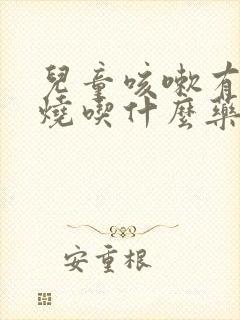 兒童咳嗽有
燒喫什麼藥
安重根